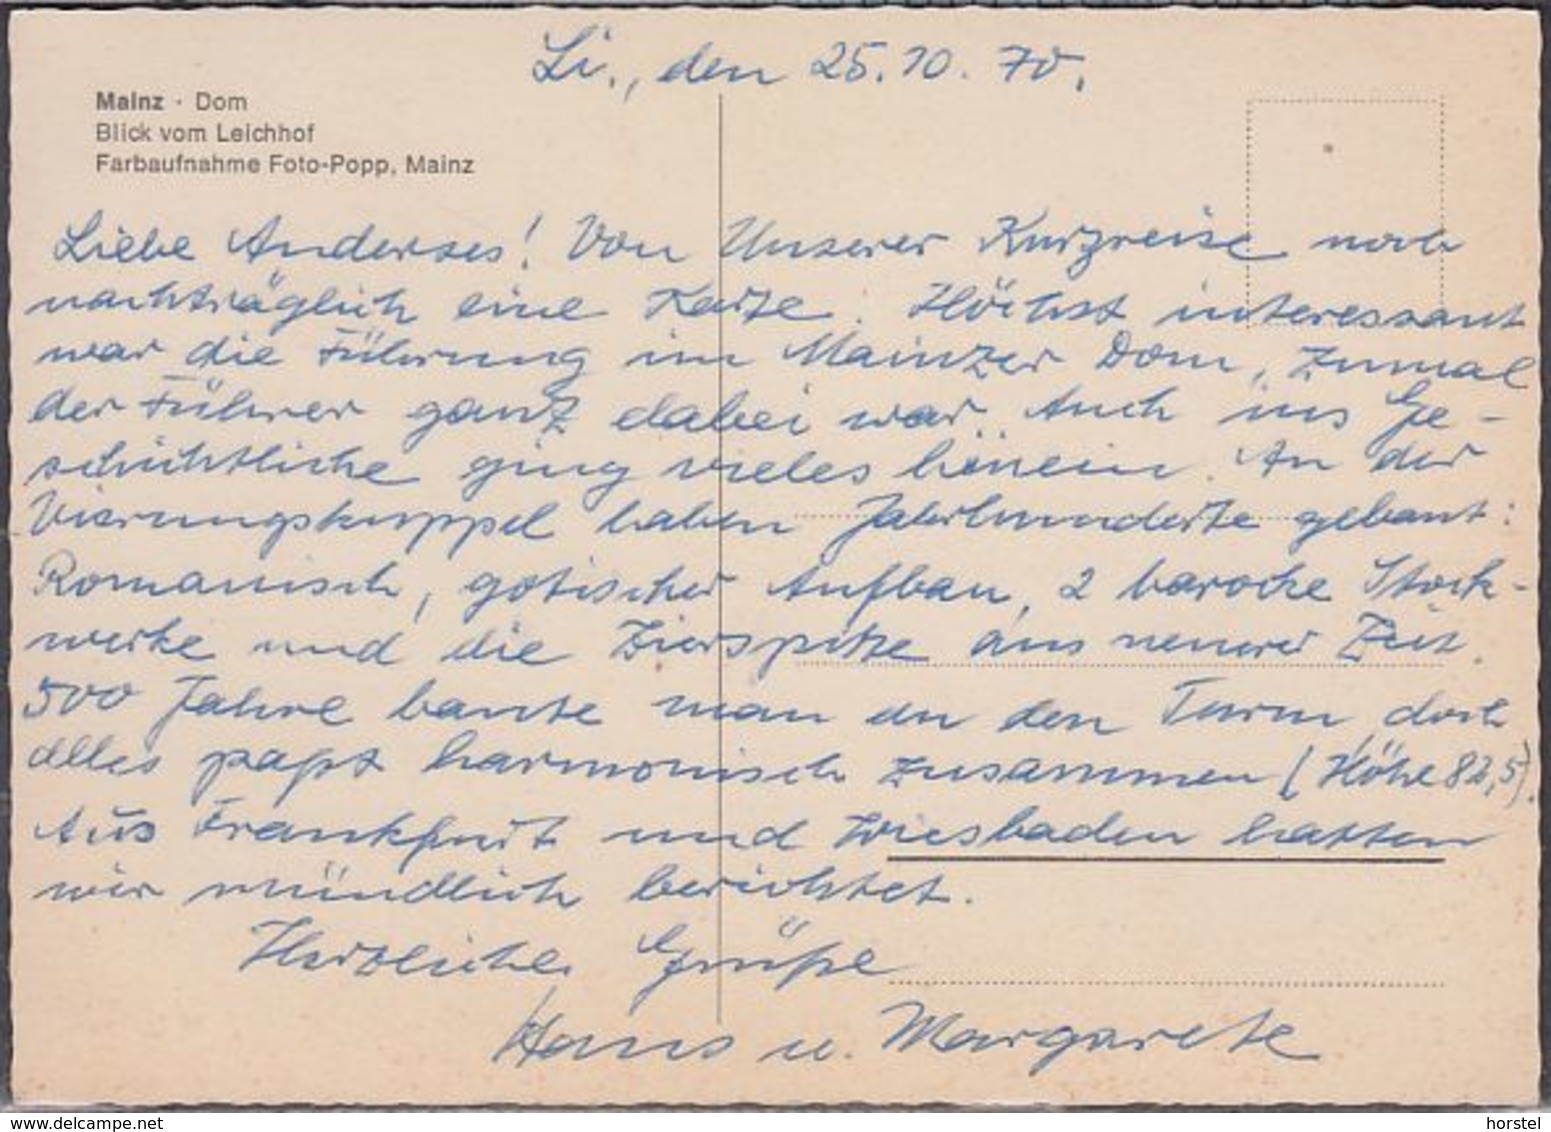 Li., den 25.10.70.
Mainz · Dom
Blick vom Leichhof
Farbaufnahme Foto-Popp, Mainz
Liebe Anderses! Von Unserer Kurzreise noch
nachträglich eine Karte. Höchst interessant
war die Führung im Mainzer Dom, zumal
der Führer ganz dabei war. Auch ins Ge-
schichtliche ging vieles hinein. An der
Vierungskuppel haben Jahrhunderte gebaut:
Romanisch, gotischer Aufbau, 2 barocke Stock-
werke und die Zierspitze aus neuerer Zeit.
500 Jahre baute man an den Turm, doch
alles paßt harmonisch zusammen (Höhe 82,5).
Aus Frankfurt und Wiesbaden hatten
wir mündlich berichtet.
Herzliche Grüße
Hans u. Margarete
www.delcampe.net
horstel